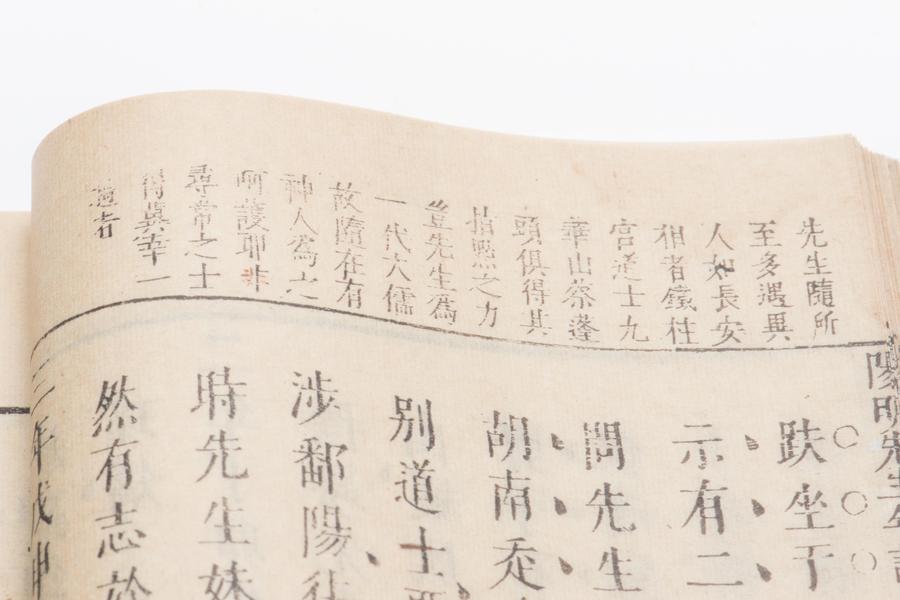 先生隨所
至多遇異
人如長安
相者鐵柱
宮道士九
華山蔡蓬
頭俱得其
指㸃之力
豈先生爲
一代大儒
故隨在有
神人為之
呵護耶非
尋常之士
得異宰一
遇者
陽明先生年
趺坐于
示有二
問先生
胡南
别道士
涉鄱陽
時先生
然有志於
三年戊申